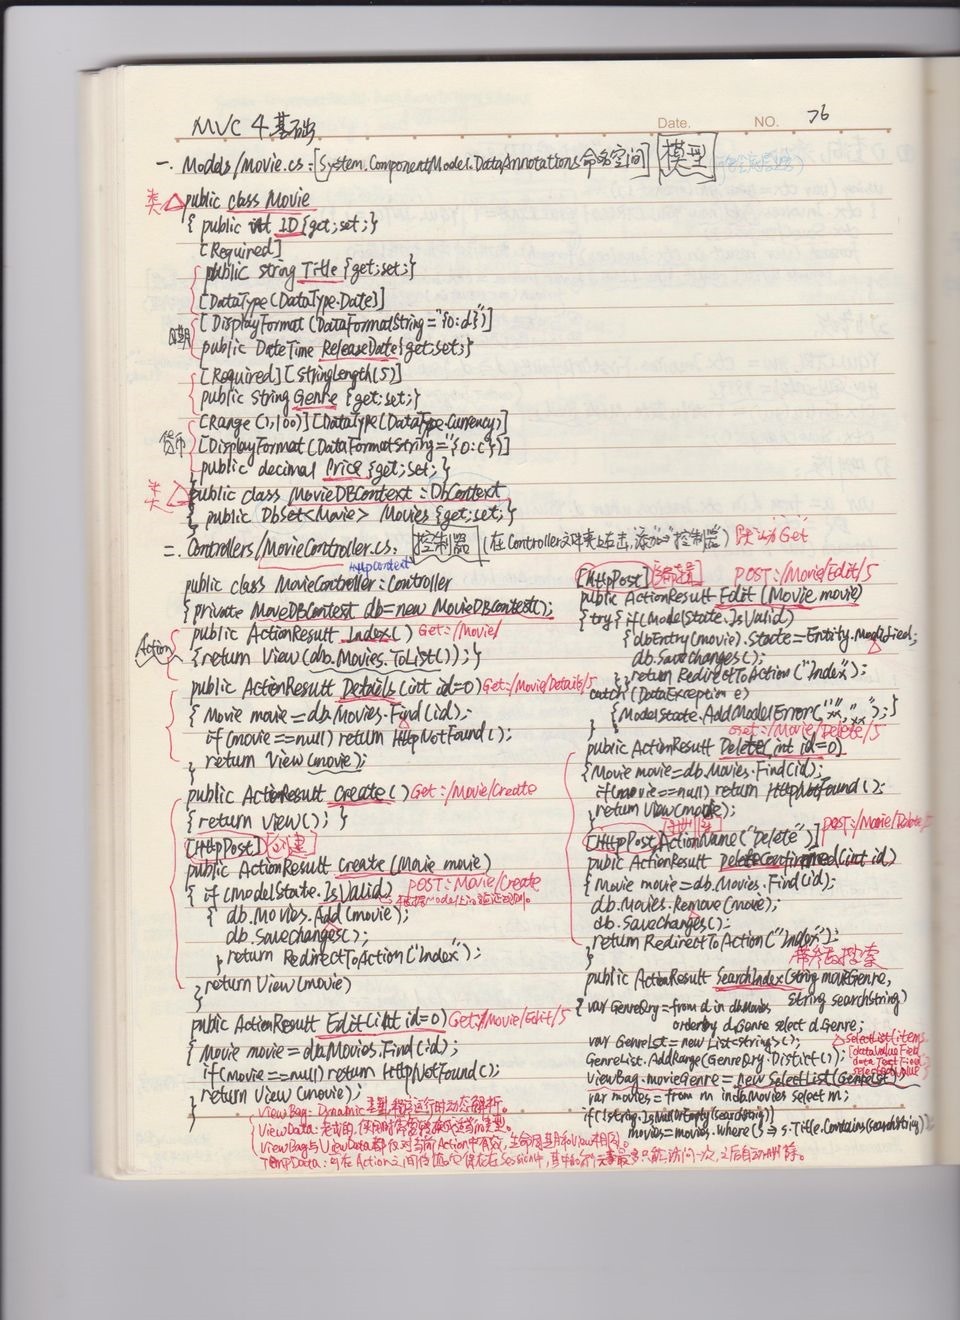 Date. NO. 76
MVC 4 基础
一. Models/Movie.cs: [System.ComponentModel.DataAnnotations 命名空间] 模型
类 public class Movie
{ public int ID {get;set;}
[Required]
public string Title {get;set;}
[DataType(DataType.Date)]
日期 [DisplayFormat(DataFormatString="{0:d}")]
public DateTime ReleaseDate {get;set;}
[Required][StringLength(5)]
public string Genre {get;set;}
[Range(1,100)][DataType(DataType.Currency)]
货币 [DisplayFormat(DataFormatString="{0:c}")]
public decimal Price {get;set;}
类 public class MovieDBContext : DbContext
{ public DbSet<Movie> Movies {get;set;}
二. Controllers/MovieController.cs. 控制器 (在Controller文件夹上右击,添加→控制器) 默认为Get
HttpContext
public class MovieController : Controller
{private MovieDBContext db=new MovieDBContext();
public ActionResult Index() Get:/Movie/
Action {return View(db.Movies.ToList());}
public ActionResult Details(int id=0) Get:/Movie/Details/5
{Movie movie=db.Movies.Find(id);
if(movie==null) return HttpNotFound();
return View(movie);
}
public ActionResult Create() Get:/Movie/Create
{return View();}
[HttpPost] 创建
public ActionResult Create(Movie movie)
{ if(ModelState.IsValid) POST:Movie/Create
根据Model上的验证规则。
{ db.Movies.Add(movie);
db.SaveChanges();
return RedirectToAction("Index");
}
return View(movie)
}
public ActionResult Edit(int id=0) Get:/Movie/Edit/5
{Movie movie=db.Movies.Find(id);
if(movie==null) return HttpNotFound();
return View(movie);
}
[HttpPost] 编辑 POST:/Movie/Edit/5
public ActionResult Edit(Movie movie)
{try{if(ModelState.IsValid)
{db.Entry(movie).State=Entity.Modified;
db.SaveChanges();
}return RedirectToAction("Index");
catch(DataException e)
{ModelState.AddModelError("xx","xx");}}
Get:/Movie/Delete/5
public ActionResult Delete(int id=0)
{Movie movie=db.Movies.Find(id);
if(movie==null) return HttpNotFound();
return View(movie);
}
[HttpPost,ActionName("Delete")] 删除 POST:/Movie/Delete/5
public ActionResult DeleteConfirmed(int id)
{Movie movie=db.Movies.Find(id);
db.Movies.Remove(movie);
db.SaveChanges();
return RedirectToAction("Index");
}
带参数搜索
public ActionResult SearchIndex(string movieGenre,
string searchString)
{var GenreQry=from d in db.Movies
orderby d.Genre select d.Genre;
var GenreLst=new List<string>();
GenreList.AddRange(GenreQry.Distict());
SelectList(items
dataValueField
dataTextField
selectedValue)
ViewBag.movieGenre=new SelectList(GenreLst)
var movies=from m in db.Movies select m;
if(!string.IsNullOrEmpty(searchstring))
movies=movies.where(s=>s.Title.Contains(searchstring));
ViewBag: Dynamic类型,程序运行时动态解析。
ViewData: 老式的,使用时需要转换成适当的类型。
ViewBag与ViewData都仅对当前Action中有效,生命周期和View相同。
TempData: 可在Action之间传值,它保存在Session中,其中的每个元素最多只能访问一次,之后自动删除。